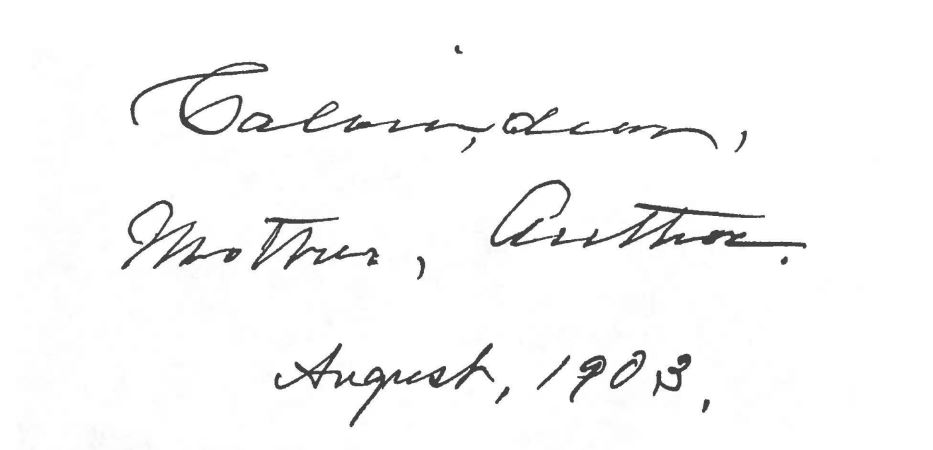 Calvin, dear,
Mother, Author.
August, 1903.